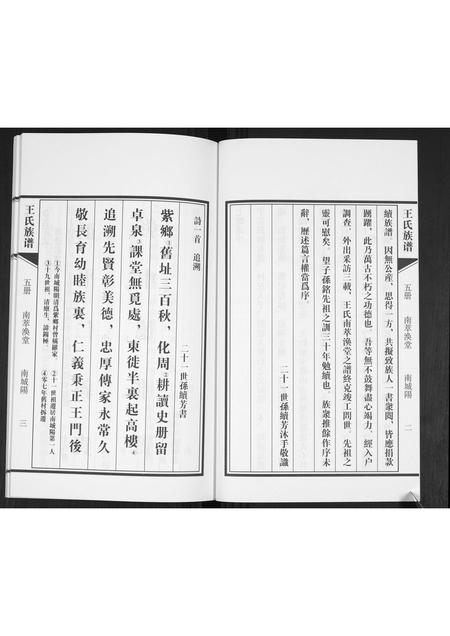 王氏族谱
五册
南萃渙堂
南城陽
二
續族譜，因無公産，思得一方，共擬致族人一書衆閲，皆應捐款
踴躍，此乃萬古不朽之功德也。吾等無不鼓舞盡心竭力，經入户
調查，外出釆訪三載，王氏南萃渙堂之譜終克竣工問世，先祖之
靈可慰矣。望子孫銘先祖之訓三十年勉續也。族衆推餘作序未
辭，歷述篇言權當爲序。
二十一世孫續芳沐手敬識
詩一首 追溯
二十一世孫續芳書
紫鄉①舊址三百秋，化周②耕讀史册留
卓泉③課堂無覓處，東徙半裏起高樓④
追溯先賢彰美德，忠厚傳家永常久
敬長育幼睦族裏，仁義秉正王門後
①今南城陽明清爲紫鄉村曾稱羅家
②十一世祖遷居南城陽第一人
③十九世祖，清廩生，諱錫極
④零七年舊村拆遷
王氏族谱
五册
南萃渙堂
南城陽
三